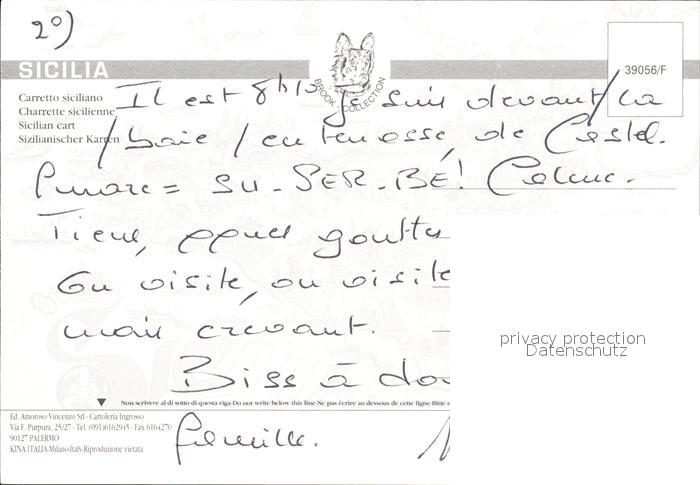 2°)
SICILIA
BROOK COLLECTION
39056/F
Carretto siciliano
Charrette sicilienne
Sicilian cart
Sizilianischer Karren
Il est 8h10 je suis devant / la
/ baie / en terrasse, de Castel.
= SU-PER-BE! Calme.
Tiens, gouttes
On visite, on visite
mais crevant.
Biss à
famille.
privacy protection
Datenschutz
Non scrivere al di sotto di questa riga-Do not write below this line-Ne pas écrire au dessous de cette ligne-Bitte
Ed. Amoroso Vincenzo Srl - Cartoleria Ingrosso
Via F. Purpura, 25/27 - Tel. (091)6162945 - Fax 6164270
90127 PALERMO
KINA ITALIA-Milano-Italy-Riproduzione vietata